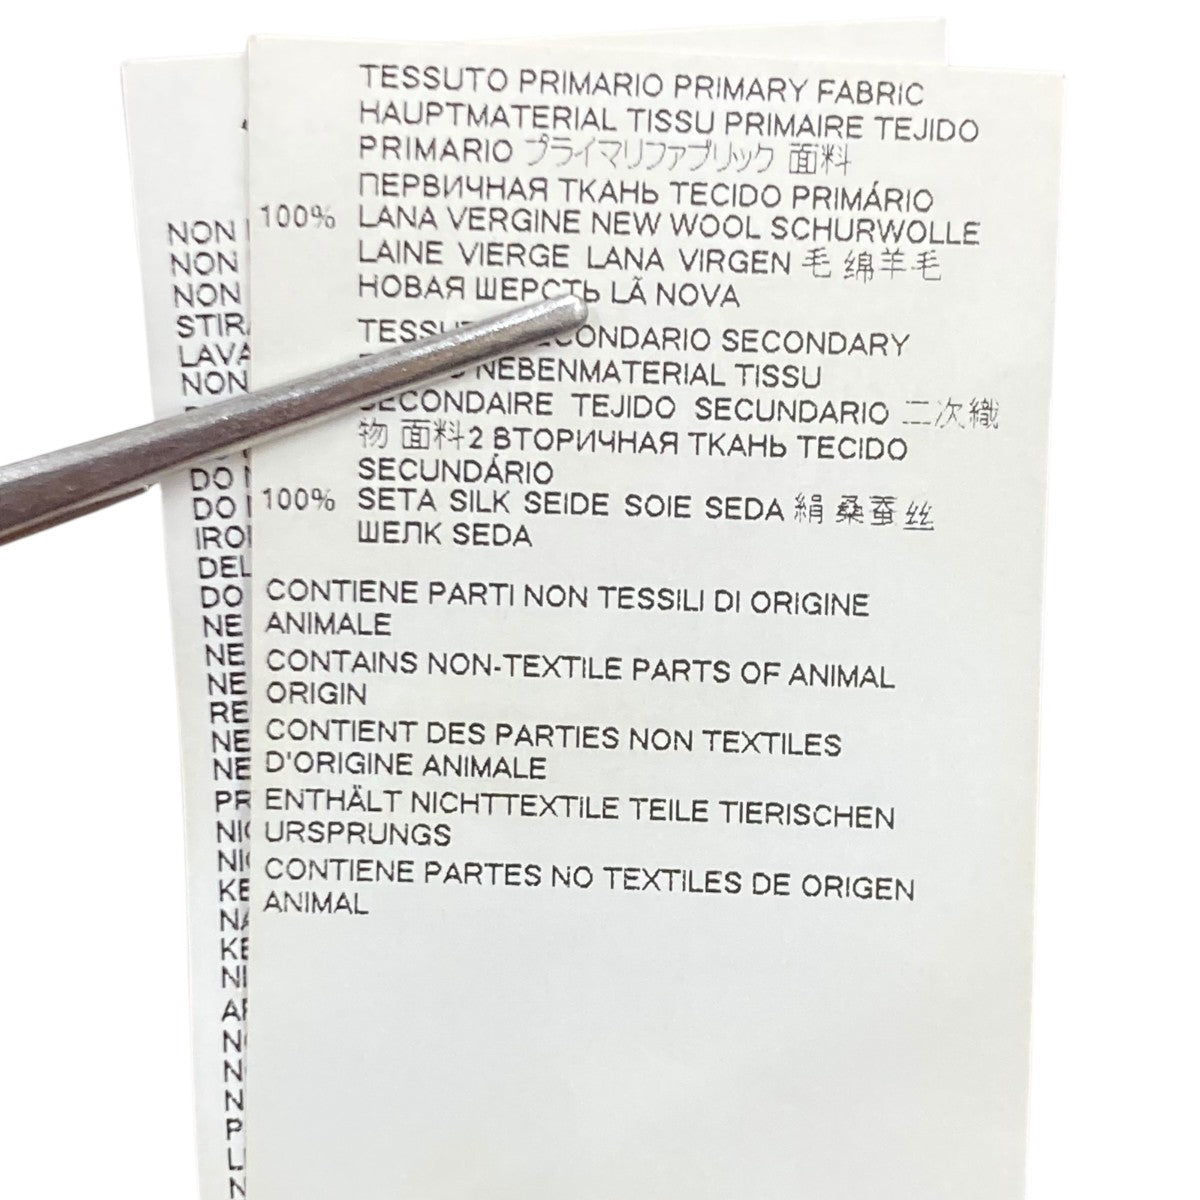 TESSUTO PRIMARIO PRIMARY FABRIC
HAUPTMATERIAL TISSU PRIMAIRE TEJIDO
PRIMARIO プライマリファブリック 面料
ПЕРВИЧНАЯ ТКАНЬ TECIDO PRIMÁRIO
100% LANA VERGINE NEW WOOL SCHURWOLLE
LAINE VIERGE LANA VIRGEN 毛 绵羊毛
НОВАЯ ШЕРСТЬ LÃ NOVA
SECONDARY
NEBENMATERIAL TISSU
SECONDAIRE TEJIDO SECUNDARIO 二次織
物 面料2 ВТОРИЧНАЯ ТКАНЬ TECIDO
SECUNDÁRIO
100% SETA SILK SEIDE SOIE SEDA 絹 桑蚕丝
ШЕЛК SEDA
CONTIENE PARTI NON TESSILI DI ORIGINE
ANIMALE
CONTAINS NON-TEXTILE PARTS OF ANIMAL
ORIGIN
CONTIENT DES PARTIES NON TEXTILES
D'ORIGINE ANIMALE
ENTHÄLT NICHTTEXTILE TEILE TIERISCHEN
URSPRUNGS
CONTIENE PARTES NO TEXTILES DE ORIGEN
ANIMAL
NON
NON
NON
NON
DO
DO
DO